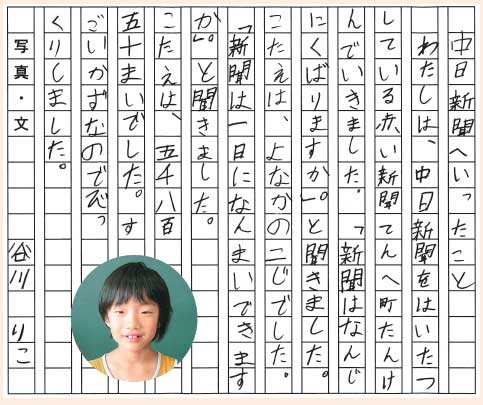 中日新聞へいったこと
わたしは、中日新聞をはいたつ
している赤い新聞てんへ町たんけ
んでいきました。「新聞はなんじ
にくばりますか」。と聞きました。
こたえは、よなかの二じでした。
「新聞は一日になんまいできます
か」。と聞きました。
こたえは、五千八百
五十まいでした。す
ごいかずなのでびっ
くりしました。
写真・文 谷川 りこ